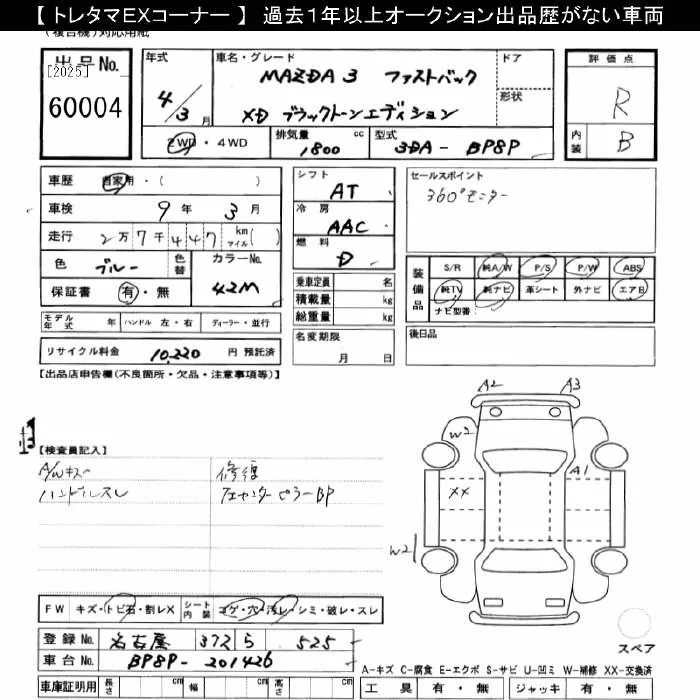 【 トレタマEXコーナー 】 過去1年以上オークション出品歴がない車両
(複合機)対応用紙
出品No.
[2025]
60004
年式
4/3月
車名・グレード
MAZDA3 ファストバック
XD ブラックトーンエディション
ドア
形状
2WD・4WD
排気量 1800 cc
型式 3DA-BP8P
評価点 R
内装 B
車歴 自家用・( )
車検 9年 3月
走行 2万7千447 km マイル( )
色 ブルー 色替
カラーNo. 42M
保証書 有・無
シフト AT
冷房 AAC
燃料 D
乗車定員 名
積載量 kg
総重量 kg
名変期限
月 日
セールスポイント
360°モニター
装備品
S/R 純A/W P/S P/W ABS
純TV 純ナビ 革シート 外ナビ エアB
ナビ型番
後日品
モデル年式 年 ハンドル 左・右 ディーラー・並行
リサイクル料金 10,220 円 預託済
【出品店申告欄(不良箇所・欠品・注意事項等)】
【検査員記入】
A/Wキズ
ハンドルスレ
修復
センターピラーBP
A2 A3
W2
A1
XX
W2
FW キズ・トビ石・割レX
シート内装 コゲ・穴・汚レ・シミ・破レ・スレ
登録No. 名古屋 372 ら 525
車台No. BP8P-201426
車庫証明用 長さ cm 幅 cm 高さ cm
スペア
A-キズ C-腐食 E-エクボ S-サビ U-凹ミ W-補修 XX-交換済
工具 有・無 ジャッキ 有・無